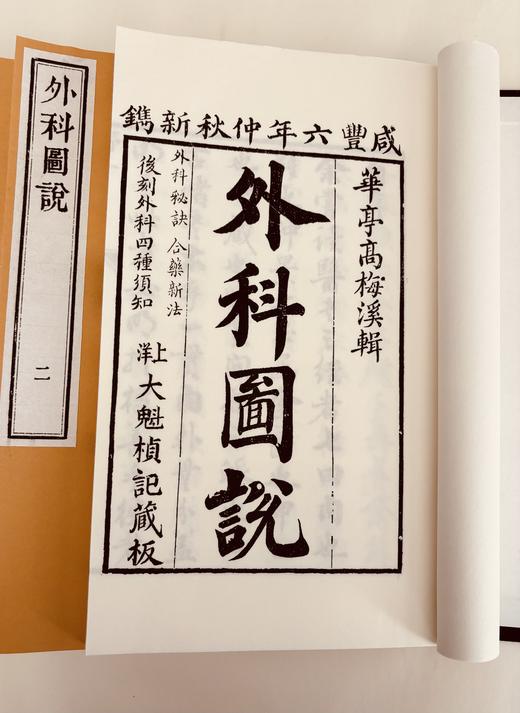 咸豐六年仲秋新鐫
華亭高梅溪輯
外科圖說
外科秘訣 合藥新法
後刻外科四種須知
上洋大魁楨記藏板
外科圖說
二